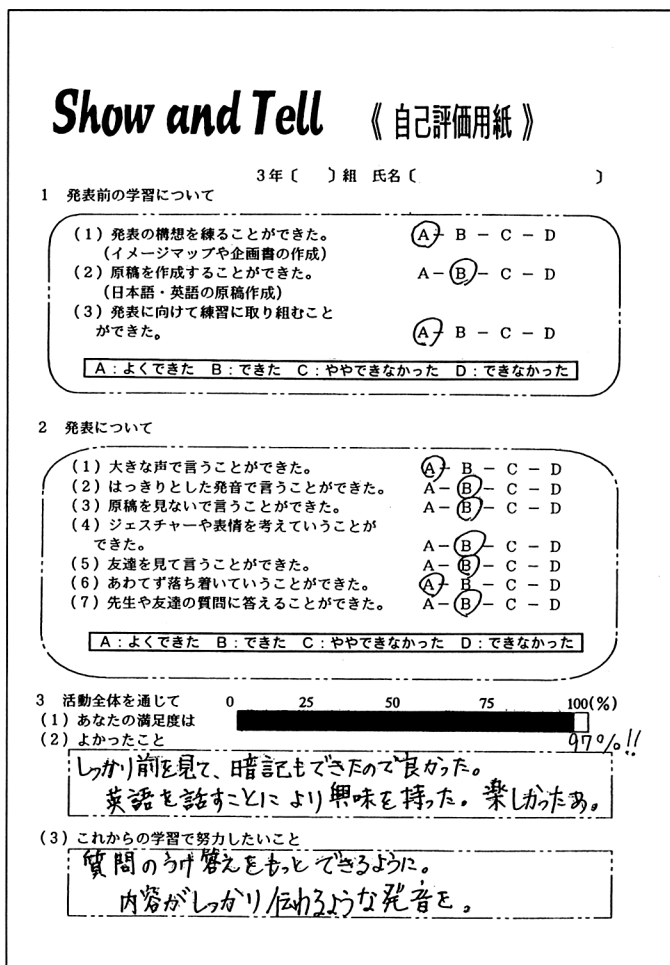 Show and Tell 《 自己評価用紙 》
3年〔　　〕組　氏名〔　　　　　　　　　〕
1　発表前の学習について
(1) 発表の構想を練ることができた。　A － B － C － D
(イメージマップや企画書の作成)
(2) 原稿を作成することができた。　A － B － C － D
(日本語・英語の原稿作成)
(3) 発表に向けて練習に取り組むこと
ができた。　A － B － C － D
A：よくできた　B：できた　C：ややできなかった　D：できなかった
2　発表について
(1) 大きな声で言うことができた。　A － B － C － D
(2) はっきりとした発音で言うことができた。　A － B － C － D
(3) 原稿を見ないで言うことができた。　A － B － C － D
(4) ジェスチャーや表情を考えていうことが
できた。　A － B － C － D
(5) 友達を見て言うことができた。　A － B － C － D
(6) あわてず落ち着いていうことができた。　A － B － C － D
(7) 先生や友達の質問に答えることができた。　A － B － C － D
A：よくできた　B：できた　C：ややできなかった　D：できなかった
3　活動全体を通じて　0　25　50　75　100(%)
(1) あなたの満足度は
97%!!
(2) よかったこと
しっかり前を見て、暗記もできたので良かった。
英語を話すことにより興味を持った。楽しかったぁ。
(3) これからの学習で努力したいこと
質問のうけ答えをもっとできるように。
内容がしっかり伝わるような発音を。